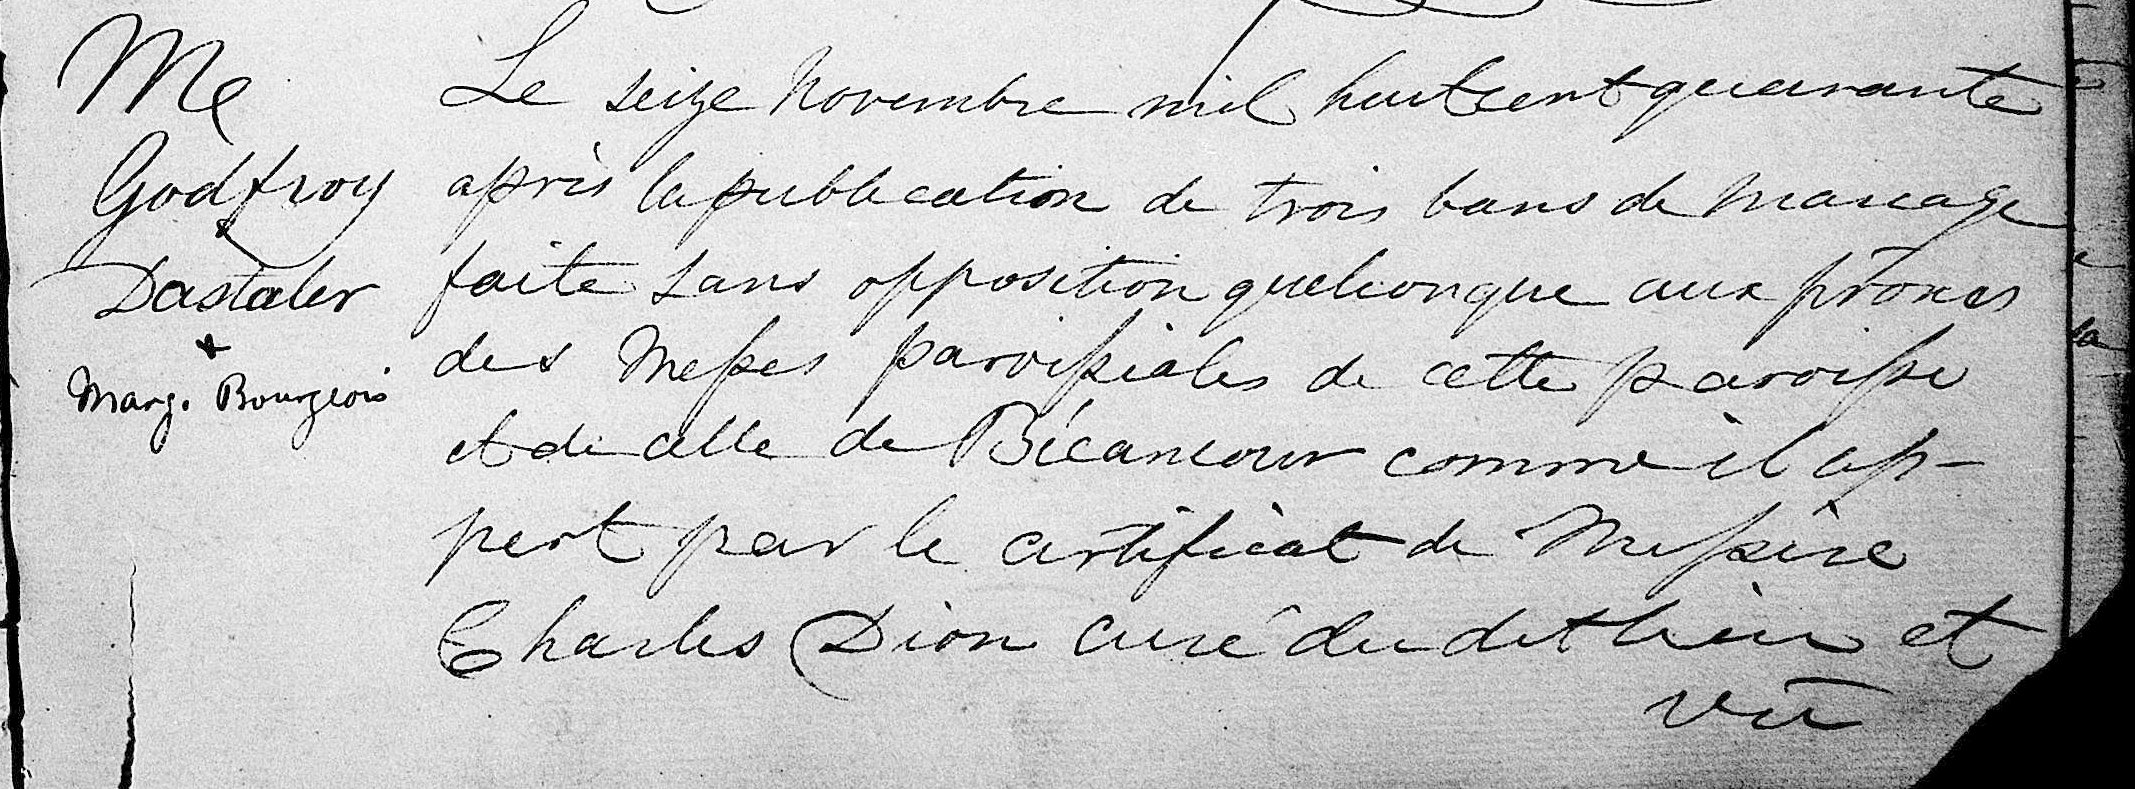 Me
Godfroy
Dastaler
+
Marg. Bourgeois
Le seize Novembre mil huit cent quarante
après la publication de trois bans de mariage
faite sans opposition quelconque aux prônes
des Messes paroissiales de cette paroisse
et de celle de Bécancour comme il ap-
pert par le certificat de Messire
Charles Dion curé du dit lieu et
vû
la